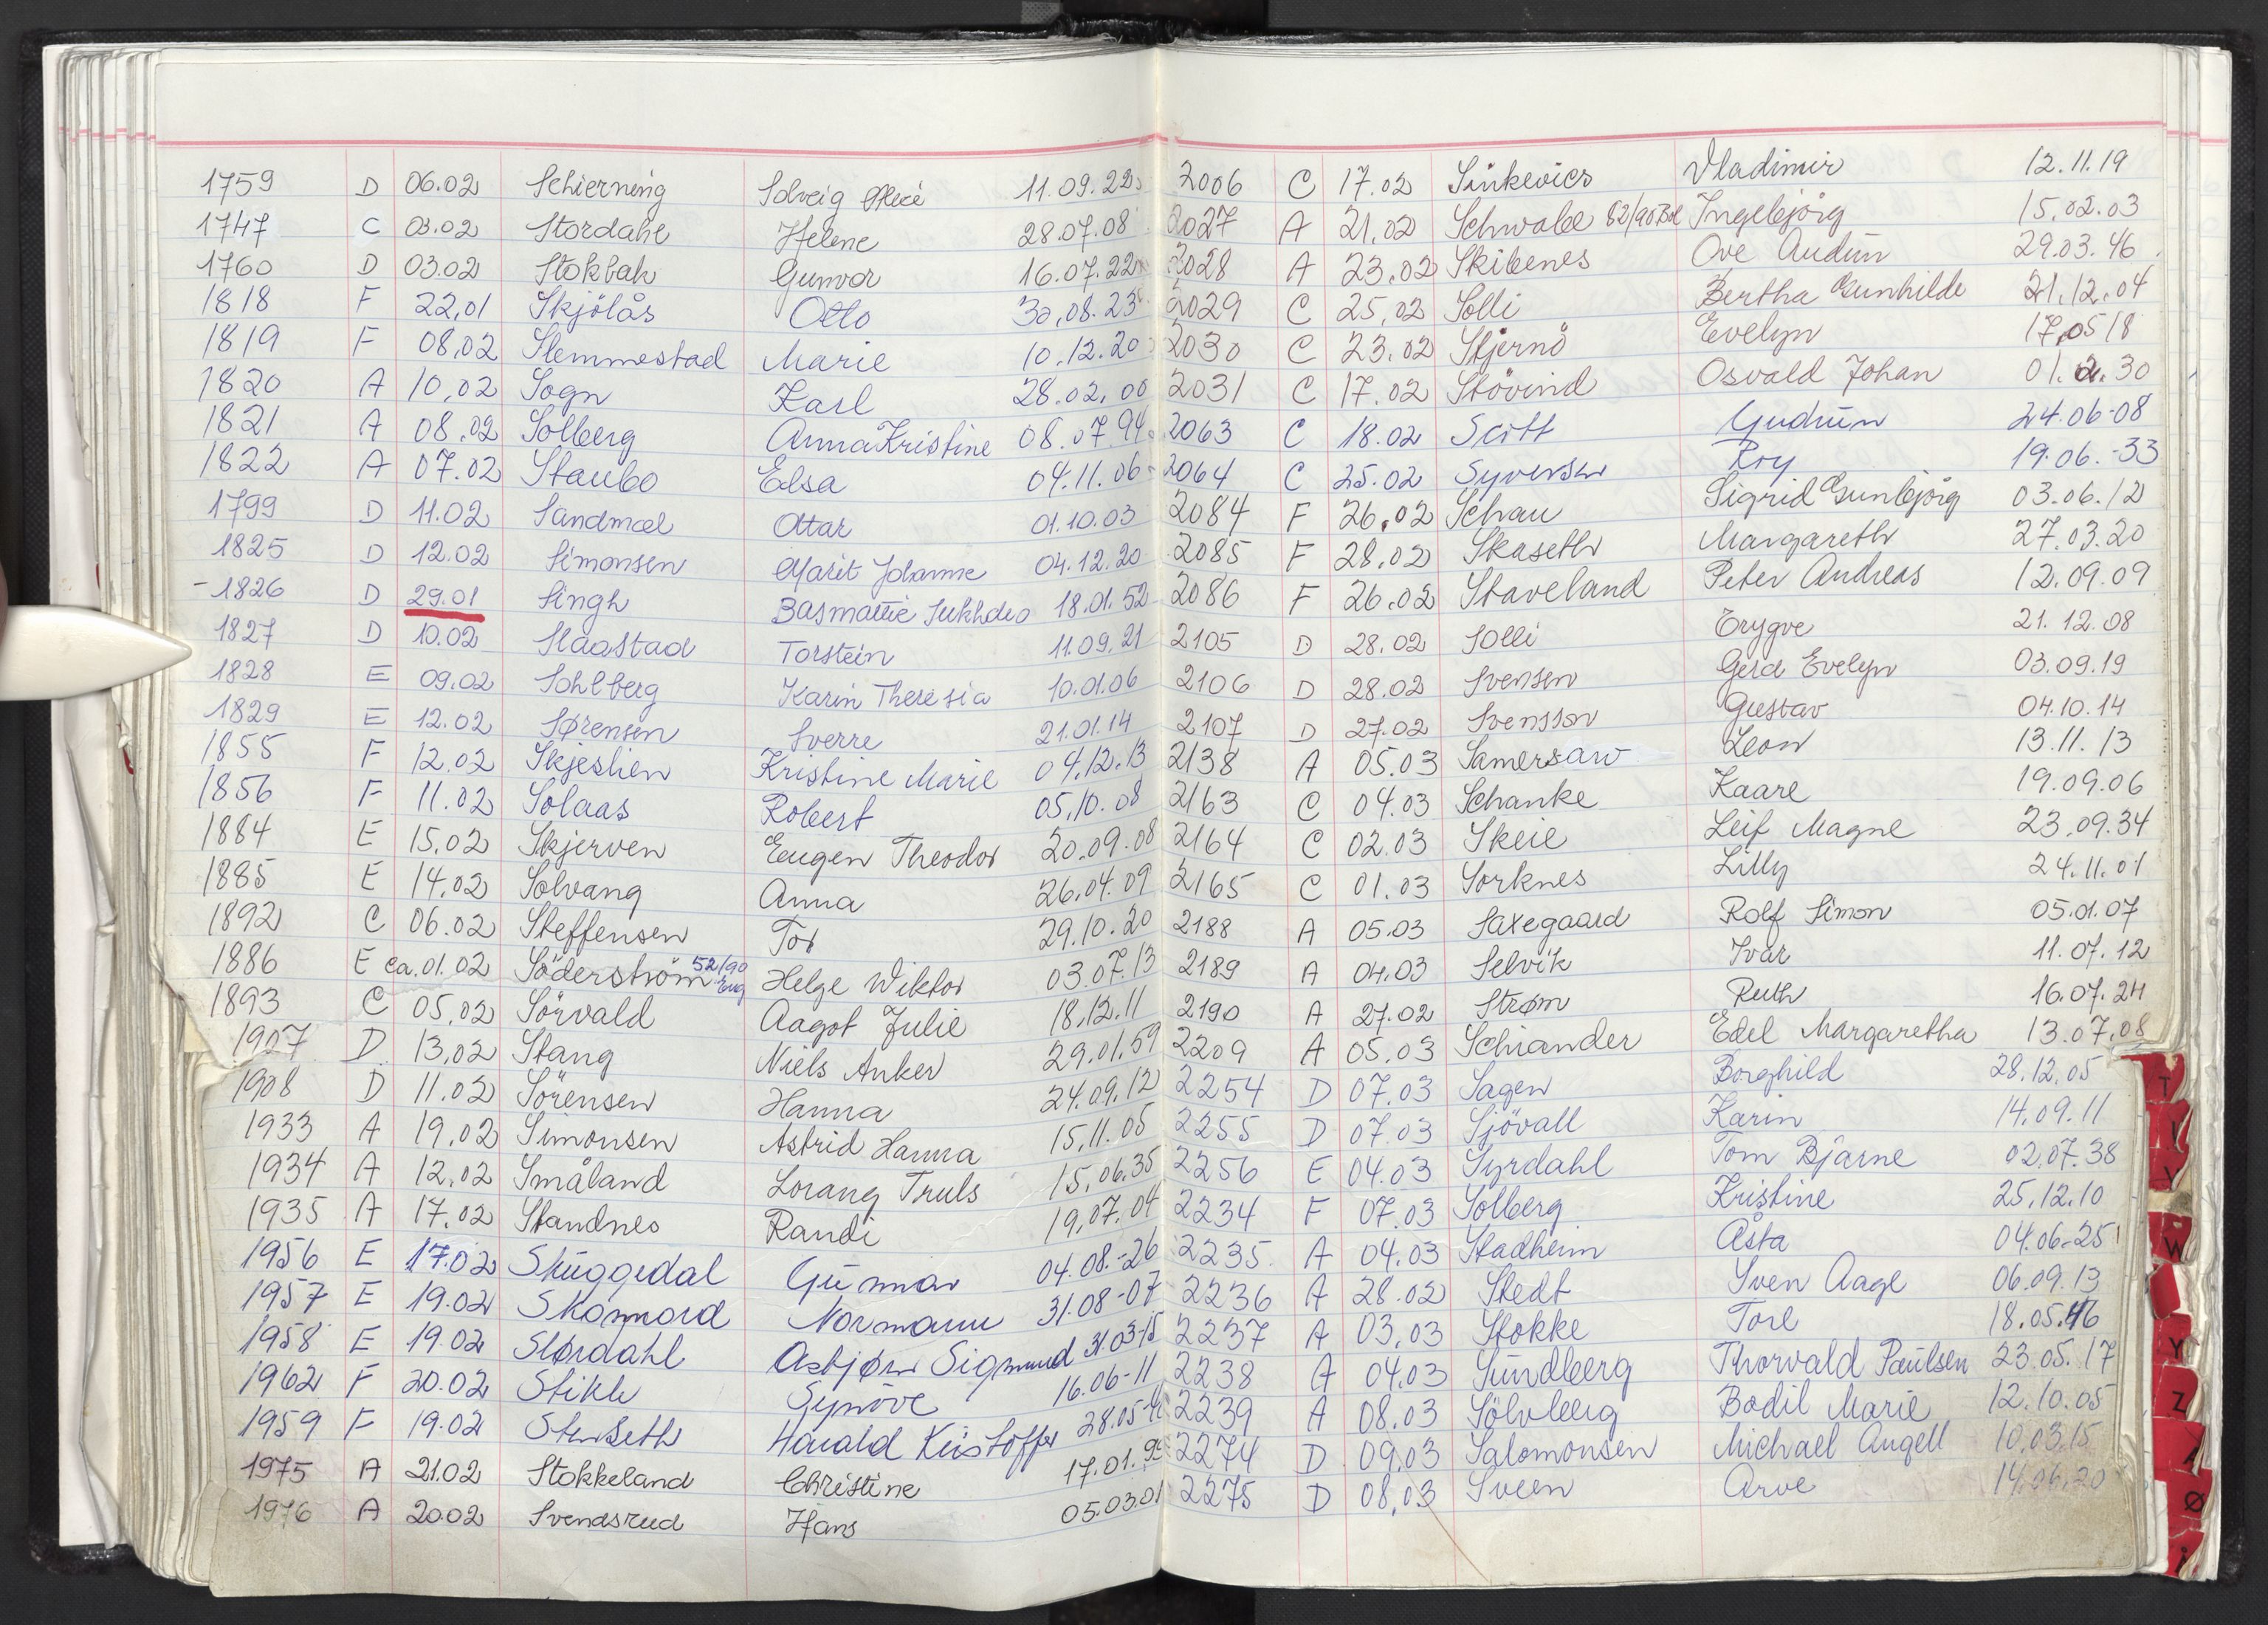 1759 D 06.02 Schierning Solveig 11.09.22
1747 C 03.02 Stordahl Helene 28.07.08
1760 D 03.02 Stokbak Gunvor 16.07.22
1818 F 22.01 Skjölås Otto 30.08.23
1819 F 08.02 Slemmestad Marie 10.12.20
1820 A 10.02 Sogn Karl 28.02.00
1821 A 08.02 Solberg Anna Kristine 08.07.94
1822 A 07.02 Staubo Elsa 04.11.06
1799 D 11.02 Sandmæl Ottar 01.10.03
1825 D 12.02 Simonsen Marit Johanne 04.12.20
-1826 D 29.01 Singh Basmattie Sukhdeo 18.01.52
1827 D 10.02 Slaastad Torstein 11.09.21
1828 E 09.02 Sohlberg Karin Theresia 10.01.06
1829 E 12.02 Sørensen Sverre 21.01.14
1855 F 12.02 Skjeslien Kristine Marie 04.12.13
1856 F 11.02 Solaas Robert 05.10.08
1884 E 15.02 Skjerven Eugen Theodor 20.09.08
1885 E 14.02 Solvang Anna 26.04.09
1892 C 06.02 Steffensen Tor 29.10.20
1886 E ca.01.02 Söderström 52/90 Eng Helge Wiktor 03.07.13
1893 C 05.02 Sörvald Aagot Julie 18.12.11
1907 D 13.02 Stang Niels Anker 29.01.59
1908 D 11.02 Sörensen Hanna 24.09.12
1933 A 19.02 Simonsen Astrid Hanna 15.11.05
1934 A 12.02 Småland Lorang Truls 15.06.35
1935 A 17.02 Standnes Randi 19.07.04
1956 E 17.02 Skuggedal Gunnar 04.08-26
1957 E 19.02 Skomnord Normann 31.08-07
1958 E 19.02 Størdahl Asbjørn Sigmund 31.03-15
1962 F 20.02 Stikle Synöve 16.06-11
1959 F 19.02 Stenseth Harald Kristoffer 28.05
1975 A 21.02 Stokkeland Christine 17.01.
1976 A 20.02 Svendsrud Hans 05.03.01
2006 C 17.02 Sinkevics Vladimir 12.11.19
2027 A 21.02 Schwabe 82/90 Ingebjörg 15.02.03
2028 A 23.02 Skibenes Ove Audun 29.03.46
2029 C 25.02 Solli Bertha Gunhilde 21.12.04
2030 C 23.02 Stjernö Evelyn 17.05 18
2031 C 17.02 Stövind Osvald Johan 01. 30
2063 C 18.02 Scott Gudrun 24.06-08
2064 C 25.02 Syversen Roy 19.06.-33
2084 F 26.02 Schau Sigrid Gunbjörg 03.06.12
2085 F 28.02 Skaseth Margareth 27.03.20
2086 F 26.02 Staveland Peter Andreas 12.09.09
2105 D 28.02 Solli Trygve 21.12.08
2106 D 28.02 Svensen Gerd Evelyn 03.09.19
2107 D 27.02 Svensson Gustav 04.10.14
2138 A 05.03 Samersaw Leon 13.11.13
2163 C 04.03 Schanke Kaare 19.09.06
2164 C 02.03 Skeie Leif Magne 23.09.34
2165 C 01.03 Sorknes Lilly 24.11.01
2188 A 05.03 Saxegaard Rolf Simon 05.01.07
2189 A 04.03 Selvik Ivar 11.07.12
2190 A 27.02 Strøm Ruth 16.07.24
2209 A 05.03 Schiander Edel Margaretha 13.07.08
2254 D 07.03 Sagen Borghild 28.12.05
2255 D 07.03 Sjövall Karin 14.09.11
2256 E 04.03 Syrdahl Tom Bjarne 02.07.38
2234 F 07.03 Solberg Kristine 25.12.10
2235 A 04.03 Stadheim Åsta 04.06-25
2236 A 28.02 Stedt Sven Aage 06.09.13
2237 A 03.03 Stokke Tore 18.05.46
2238 A 04.03 Sundberg Thorvald Paulsen 23.05.17
2239 A 08.03 Sölvberg Bodil Marie 12.10.05
2274 D 09.03 Salomonsen Michael Angell 10.03.15
2275 D 08.03 Sveen Arve 14.06.20
T
V
W
Y
Z
Ø